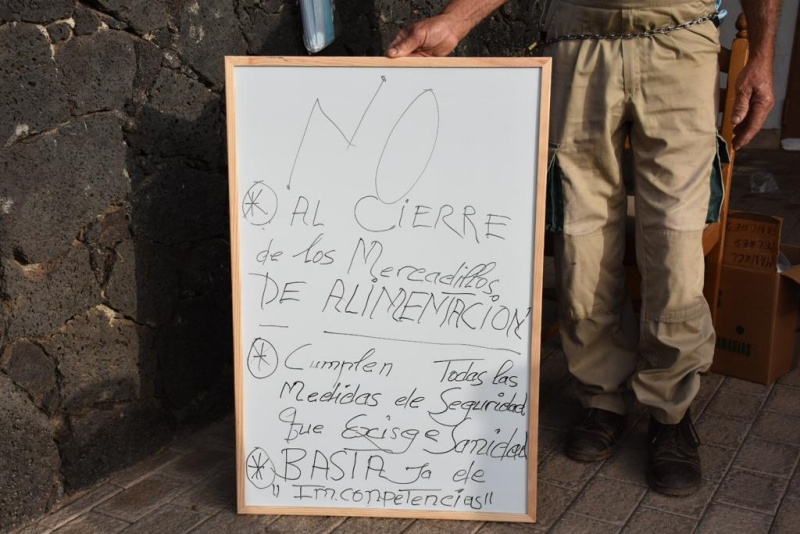 NO
AL CIERRE
de los Mercadillos
DE ALIMENTACIÓN
Cumplen Todas las
Medidas de Seguridad
Que Exisge Sanidad
BASTA Ya de
"Im.conpetencias"